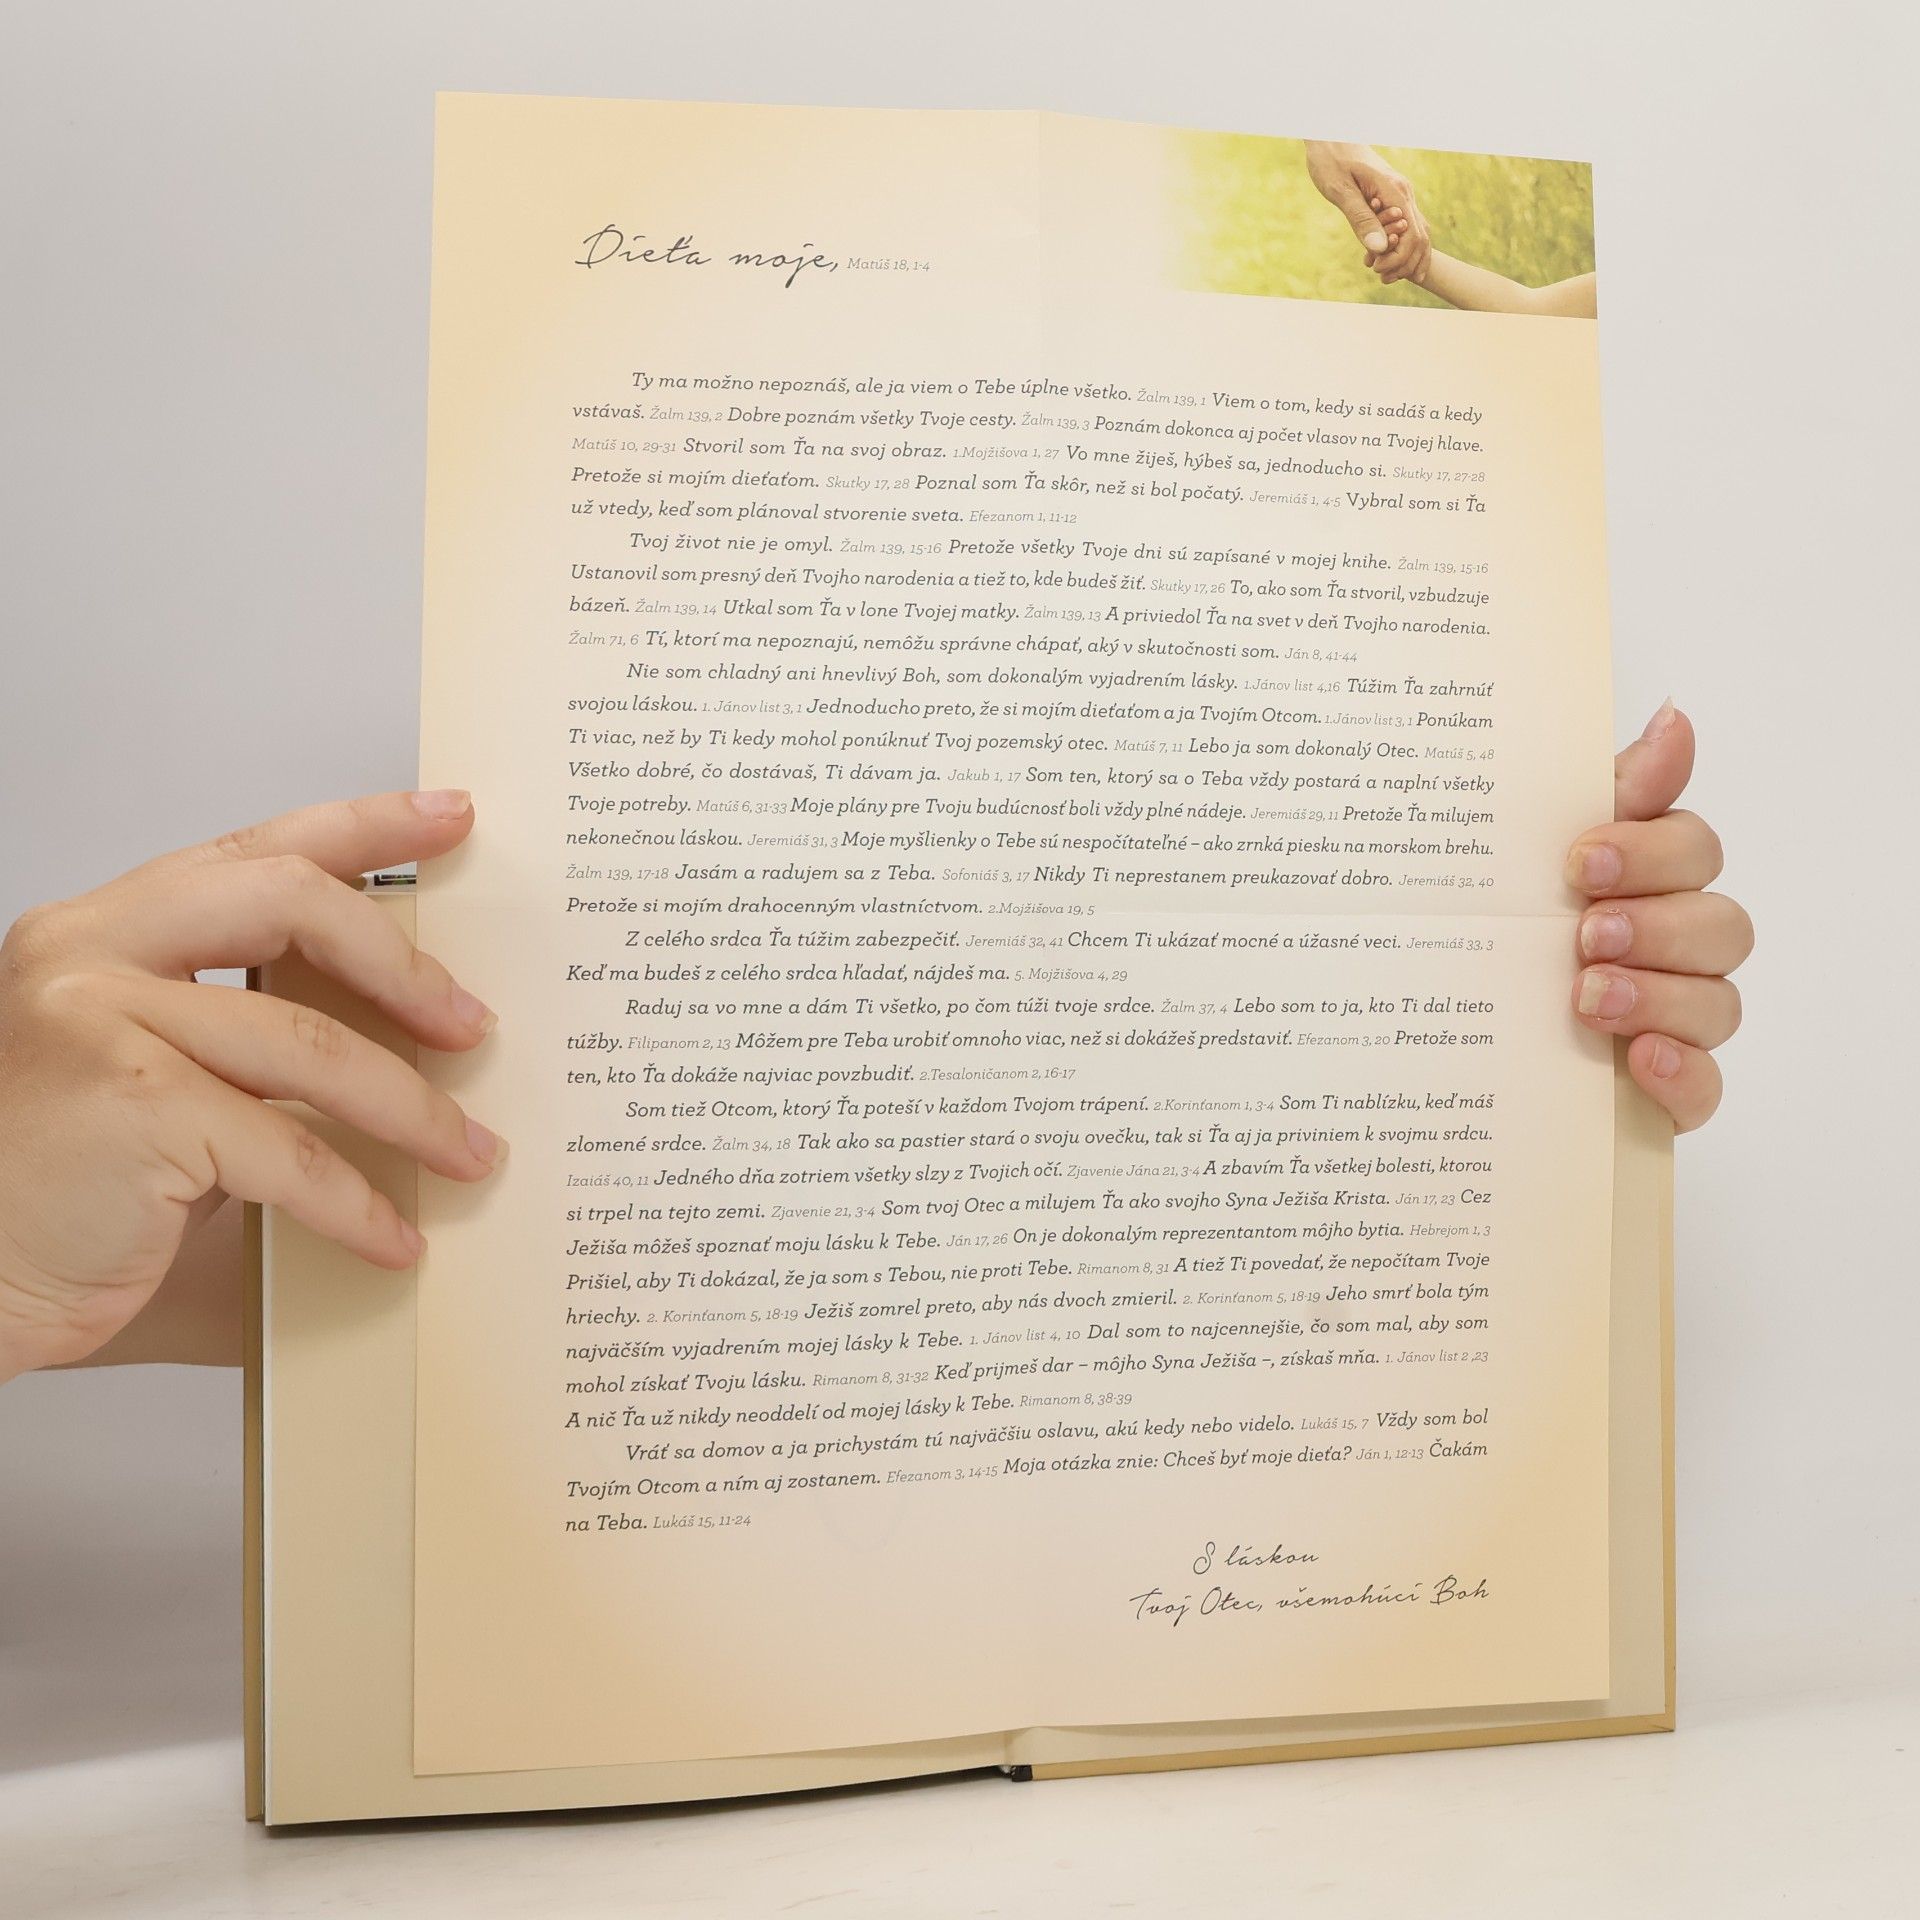 Dieťa moje, Matúš 18, 1-4
Ty ma možno nepoznáš, ale ja viem o Tebe úplne všetko. Žalm 139, 1 Viem o tom, kedy si sadáš a kedy
vstávaš. Žalm 139, 2 Dobre poznám všetky Tvoje cesty. Žalm 139, 3 Poznám dokonca aj počet vlasov na Tvojej hlave.
Matúš 10, 29-31 Stvoril som Ťa na svoj obraz. 1.Mojžišova 1, 27 Vo mne žiješ, hýbeš sa, jednoducho si. Skutky 17, 27-28
Pretože si mojím dieťaťom. Skutky 17, 28 Poznal som Ťa skôr, než si bol počatý. Jeremiáš 1, 4-5 Vybral som si Ťa
už vtedy, keď som plánoval stvorenie sveta. Efezanom 1, 11-12
Tvoj život nie je omyl. Žalm 139, 15-16 Pretože všetky Tvoje dni sú zapísané v mojej knihe. Žalm 139, 15-16
Ustanovil som presný deň Tvojho narodenia a tiež to, kde budeš žiť. Skutky 17, 26 To, ako som Ťa stvoril, vzbudzuje
bázeň. Žalm 139, 14 Utkal som Ťa v lone Tvojej matky. Žalm 139, 13 A priviedol Ťa na svet v deň Tvojho narodenia.
Žalm 71, 6 Tí, ktorí ma nepoznajú, nemôžu správne chápať, aký v skutočnosti som. Ján 8, 41-44
Nie som chladný ani hnevlivý Boh, som dokonalým vyjadrením lásky. 1.Jánov list 4,16 Túžim Ťa zahrnúť
svojou láskou. 1. Jánov list 3, 1 Jednoducho preto, že si mojím dieťaťom a ja Tvojím Otcom. 1.Jánov list 3, 1 Ponúkam
Ti viac, než by Ti kedy mohol ponúknuť Tvoj pozemský otec. Matúš 7, 11 Lebo ja som dokonalý Otec. Matúš 5, 48
Všetko dobré, čo dostávaš, Ti dávam ja. Jakub 1, 17 Som ten, ktorý sa o Teba vždy postará a naplní všetky
Tvoje potreby. Matúš 6, 31-33 Moje plány pre Tvoju budúcnosť boli vždy plné nádeje. Jeremiáš 29, 11 Pretože Ťa milujem
nekonečnou láskou. Jeremiáš 31, 3 Moje myšlienky o Tebe sú nespočítateľné – ako zrnká piesku na morskom brehu.
Žalm 139, 17-18 Jasám a radujem sa z Teba. Sofoniáš 3, 17 Nikdy Ti neprestanem preukazovať dobro. Jeremiáš 32, 40
Pretože si mojím drahocenným vlastníctvom. 2.Mojžišova 19, 5
Z celého srdca Ťa túžim zabezpečiť. Jeremiáš 32, 41 Chcem Ti ukázať mocné a úžasné veci. Jeremiáš 33, 3
Keď ma budeš z celého srdca hľadať, nájdeš ma. 5. Mojžišova 4, 29
Raduj sa vo mne a dám Ti všetko, po čom túži tvoje srdce. Žalm 37, 4 Lebo som to ja, kto Ti dal tieto
túžby. Filipanom 2, 13 Môžem pre Teba urobiť omnoho viac, než si dokážeš predstaviť. Efezanom 3, 20 Pretože som
ten, kto Ťa dokáže najviac povzbudiť. 2.Tesaloničanom 2, 16-17
Som tiež Otcom, ktorý Ťa poteší v každom Tvojom trápení. 2.Korinťanom 1, 3-4 Som Ti nablízku, keď máš
zlomené srdce. Žalm 34, 18 Tak ako sa pastier stará o svoju ovečku, tak si Ťa aj ja priviniem k svojmu srdcu.
Izaiáš 40, 11 Jedného dňa zotriem všetky slzy z Tvojich očí. Zjavenie Jána 21, 3-4 A zbavím Ťa všetkej bolesti, ktorou
si trpel na tejto zemi. Zjavenie 21, 3-4 Som tvoj Otec a milujem Ťa ako svojho Syna Ježiša Krista. Ján 17, 23 Cez
Ježiša môžeš spoznať moju lásku k Tebe. Ján 17, 26 On je dokonalým reprezentantom môjho bytia. Hebrejom 1, 3
Prišiel, aby Ti dokázal, že ja som s Tebou, nie proti Tebe. Rimanom 8, 31 A tiež Ti povedať, že nepočítam Tvoje
hriechy. 2. Korinťanom 5, 18-19 Ježiš zomrel preto, aby nás dvoch zmieril. 2. Korinťanom 5, 18-19 Jeho smrť bola tým
najväčším vyjadrením mojej lásky k Tebe. 1. Jánov list 4, 10 Dal som to najcennejšie, čo som mal, aby som
mohol získať Tvoju lásku. Rimanom 8, 31-32 Keď prijmeš dar – môjho Syna Ježiša –, získaš mňa. 1. Jánov list 2 ,23
A nič Ťa už nikdy neoddelí od mojej lásky k Tebe. Rimanom 8, 38-39
Vráť sa domov a ja prichystám tú najväčšiu oslavu, akú kedy nebo videlo. Lukáš 15, 7 Vždy som bol
Tvojím Otcom a ním aj zostanem. Efezanom 3, 14-15 Moja otázka znie: Chceš byť moje dieťa? Ján 1, 12-13 Čakám
na Teba. Lukáš 15, 11-24
S láskou
Tvoj Otec, všemohúci Boh